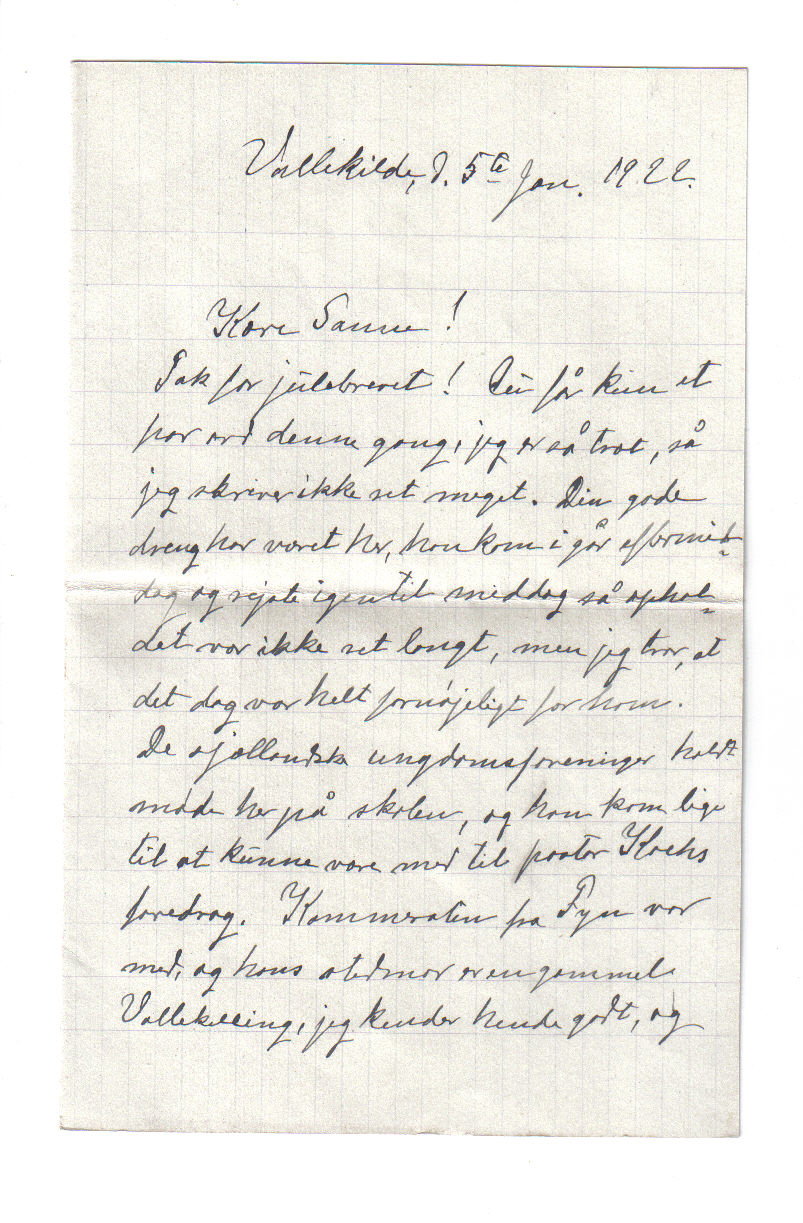 Vallekilde, d. 5te Jan. 1922.
Kære Sanne!
Tak for julebrevet! Du får kun et
par ord denne gang, jeg er så træt, så
jeg skriver ikke ret meget. Din gode
dreng har været her, han kom i går eftermid-
dag og rejste igen til middag så ophol-
det var ikke ret langt, men jeg tror, at
det dog var helt fornøjeligt for ham.
De sjællandske ungdomsforeninger holdt
møde her på skolen, og han kom lige
til at kunne være med til pastor Kochs
foredrag. Kammeraten fra Fyn var
med, og hans stedmor er en gammel
Vallekilling, jeg kender hende godt, og